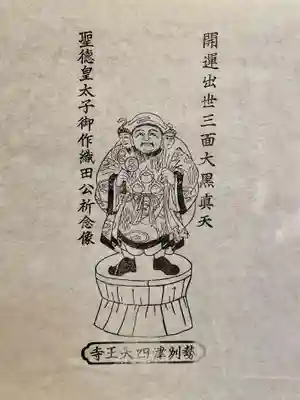 開運出世三面大黑真天
聖德皇太子御作織田公祈念像
勢州津四天王寺